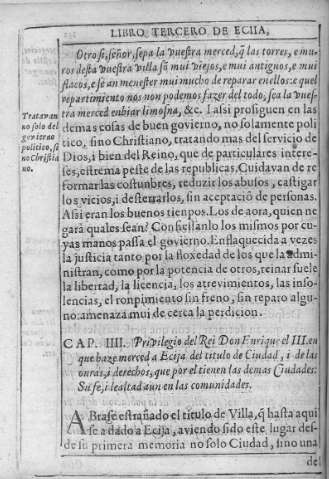 LIBRO TERCERO DE ECIJA,
Otrosi, señor, sepa la vuestra merced, q̃ las torres, e mu-
ros desta vuestra villa sõ mui viejos, e mui antiguos, e mui
flacos, e se an menester mui mucho de reparar en ellos: e quel
repartimiento nos non podemos fazer del todo, sea la vues-
tra merced enbiar limosna, &c. I alsi prosiguen en las
demas cosas de buen govierno, no solamente poli
tico, sino Christiano, tratando mas del servicio de
Dios, i bien del Reino, que de particulares intere-
ses, estrema peste de las republicas. Cuidavan de re
formar las costunbres, reduzir los abusos, castigar
los vicios, i desterrarlos, sin aceptació de personas.
Asi eran los buenos tienpos. Los de aora, quien ne
gará quales sean? Confiesanlo los mismos por cu-
yas manos passa el govierno. Enflaquecida a vezes
la justicia tanto por la floxedad de los que la admi-
nistran, como por la potencia de otros, reinar suele
la libertad, la licencia, los atrevimientos, las inso-
lencias, el ronpimiento sin freno, sin reparo algu-
no: amenaza mui de cerca la perdicion.
Tratavan
no solo del
govierno
politico, sĩ
no Christia
no.
CAP. IIII. Privilegio del Rei Don Enrique el III. en
que haze merced a Ecija del titulo de Ciudad, i de las
onras, i derechos, que por el tienen las demas Ciudades:
Su fe, i lealtad aun en las comunidades.
ABrase estrañado el titulo de Villa, q̃ hasta aqui
se a dado a Ecija, aviendo sido este lugar des-
de su primera memoria no solo Ciudad, sino una
de